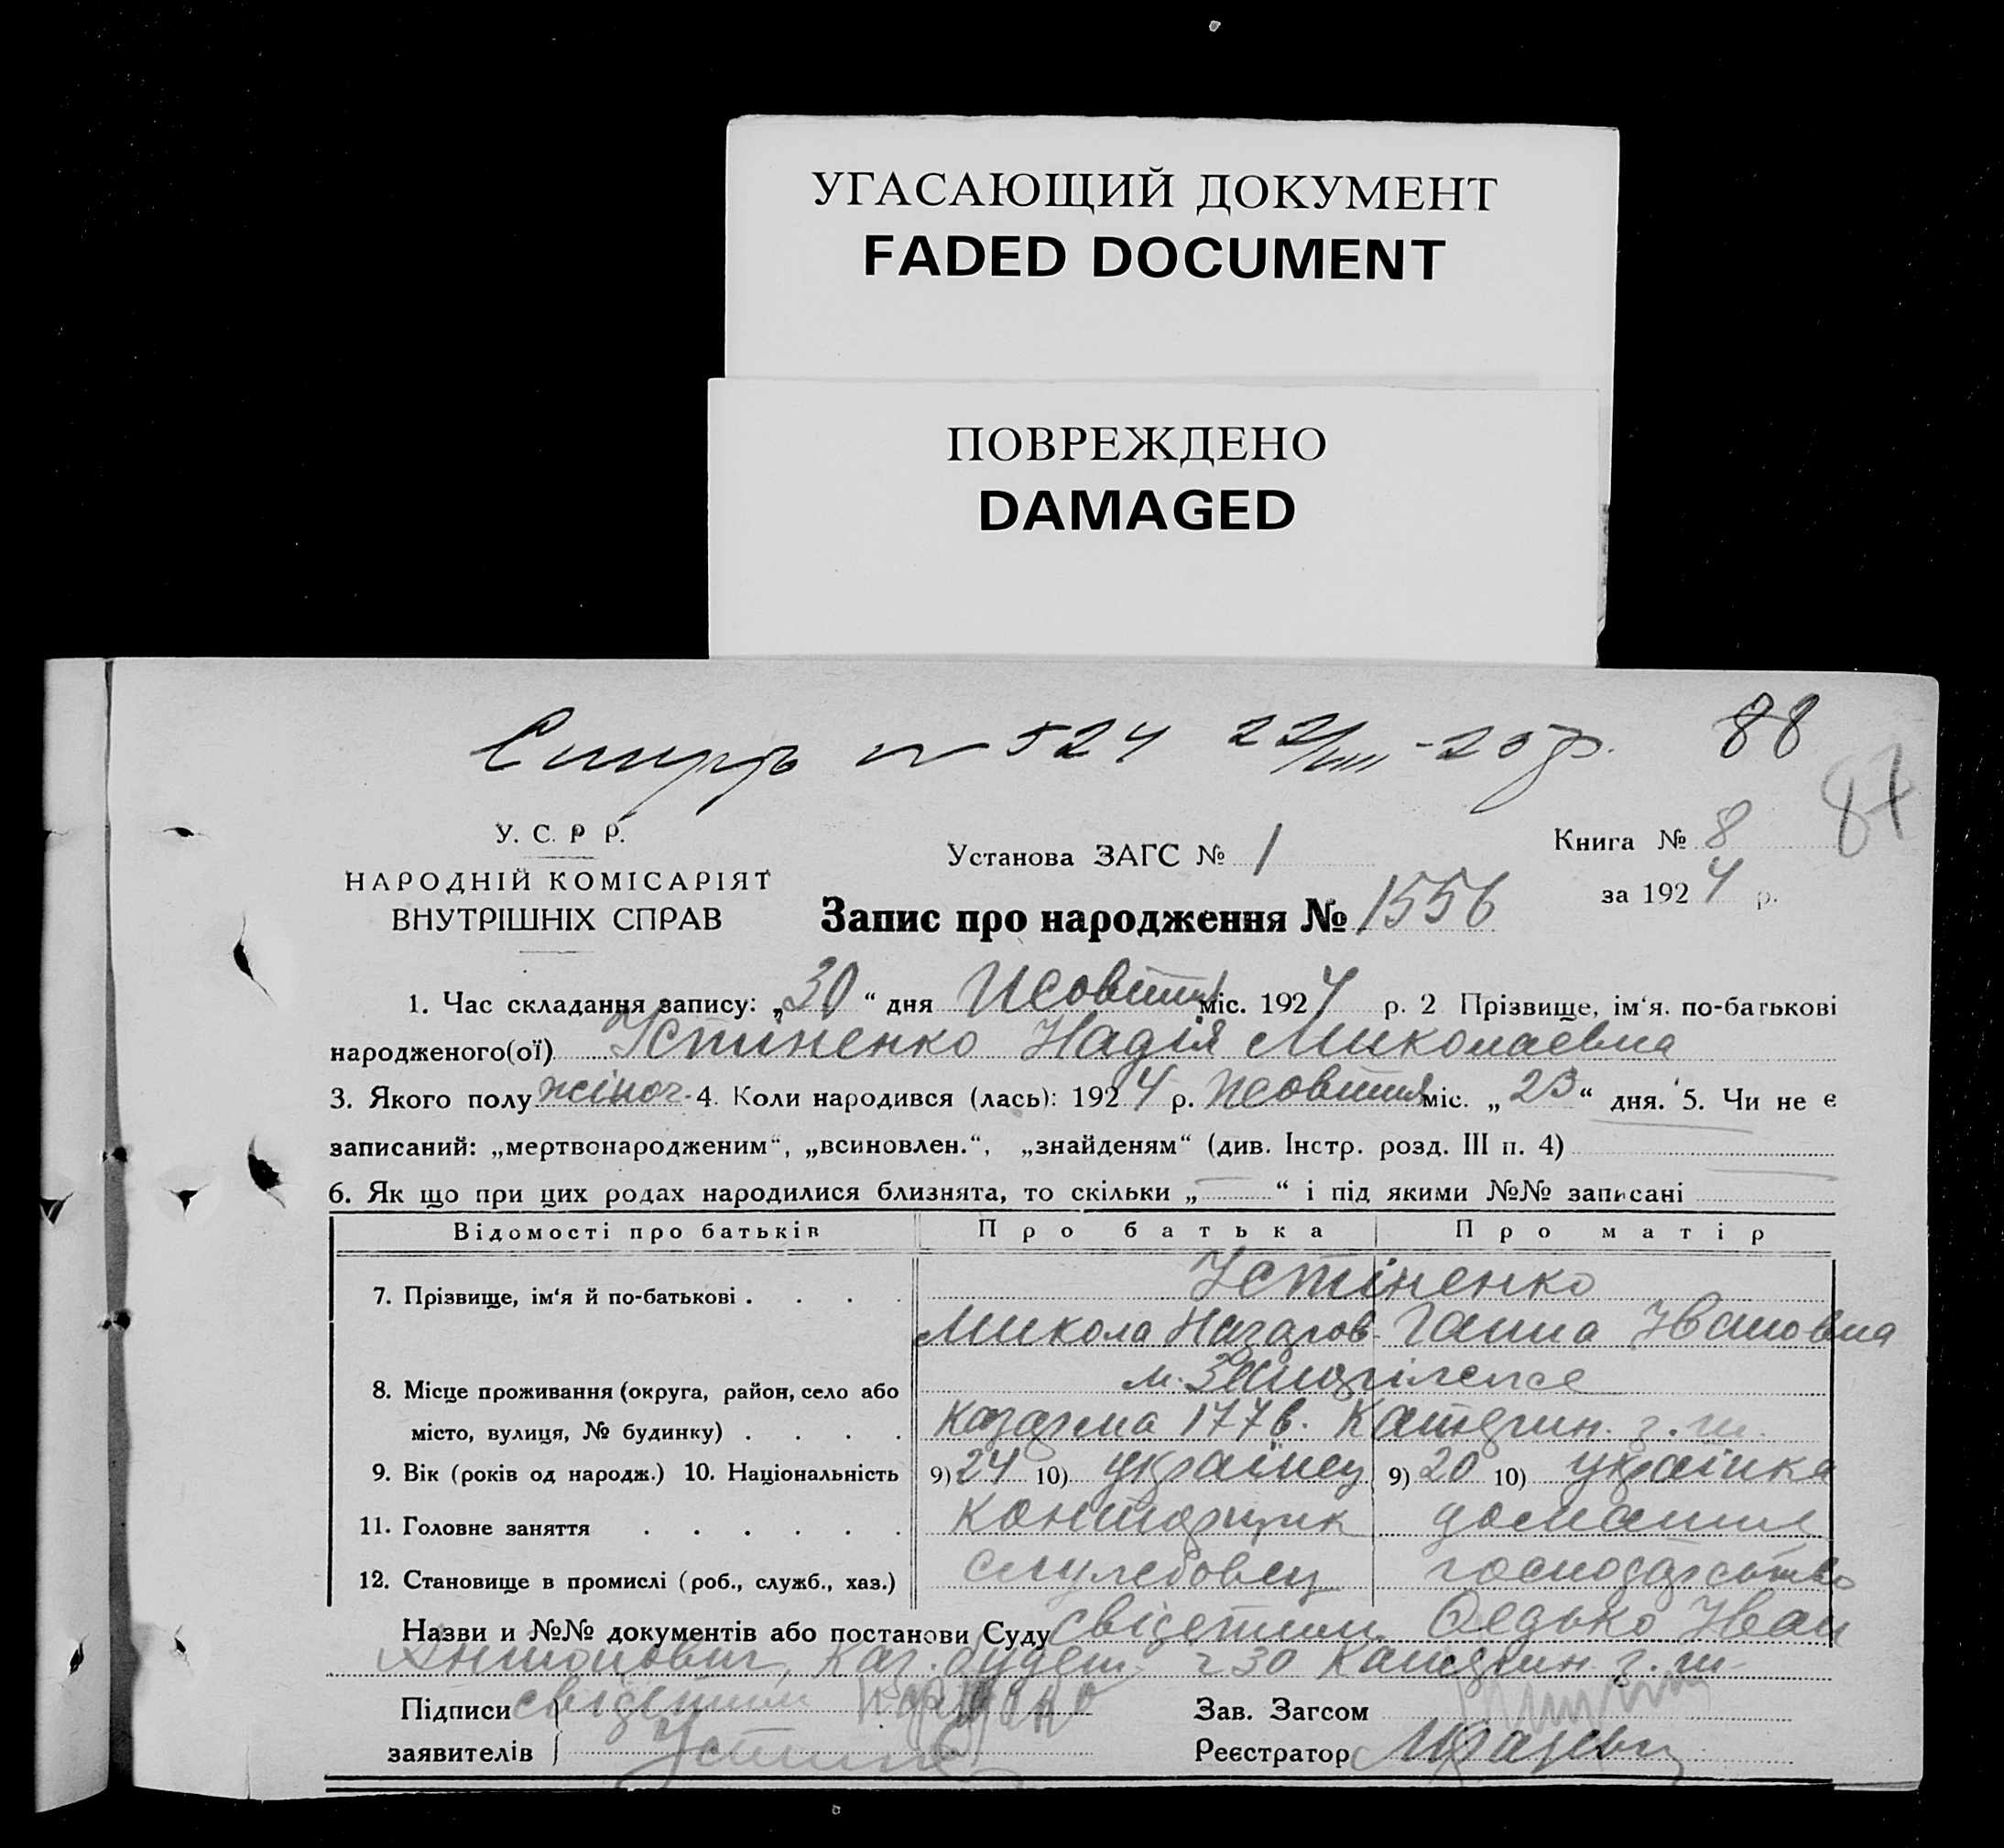 УГАСАЮЩИЙ ДОКУМЕНТ
FADED DOCUMENT
ПОВРЕЖДЕНО
DAMAGED
№ 524 22/VIII - 25 р. 88
87
У. С. Р Р.
НАРОДНІЙ КОМІСАРІЯТ
ВНУТРІШНІХ СПРАВ
Установа ЗАГС № 1
Книга № 8
за 1924 р.
Запис про народження № 1556
1. Час складання запису: „30“ дня Жовтня міс. 1924 р. 2 Прізвище, ім‘я. по-батькові
народженого(ої) Устіненко Надія Миколаевна
3. Якого полу жіноч. 4. Коли народився (лась): 1924 р. Жовтня міс. „23“ дня. 5. Чи не є
записаний: „мертвонародженим“, „всиновлен.“, „знайденям“ (див. Інстр. розд. III п. 4)
6. Як що при цих родах народилися близнята, то скільки „ “ і під якими №№ записані
Відомості про батьків Про батька Про матір
7. Прізвище, ім‘я й по-батькові . . . . Устіненко
Микола Назаров. Ганна Івановна
8. Місце проживання (округа, район, село або м. Запоріжже
місто, вулиця, № будинку) . . . . Казарма 177 в. Катерин. з. ш.
9. Вік (років од народж.) 10. Національність 9) 24 10) українец 9) 20 10) українка
11. Головне заняття . . . . . . конторщик домашнє
12. Становище в промислі (роб., служб., хаз.) служебовец господарство
Назви и №№ документів або постанови Суду свідетели Федько Іван
Антонович, Каз. будет. 230 Катерин. з. ш.
Підписи свідетели Зав. Загсом
заявителів Реєстратор